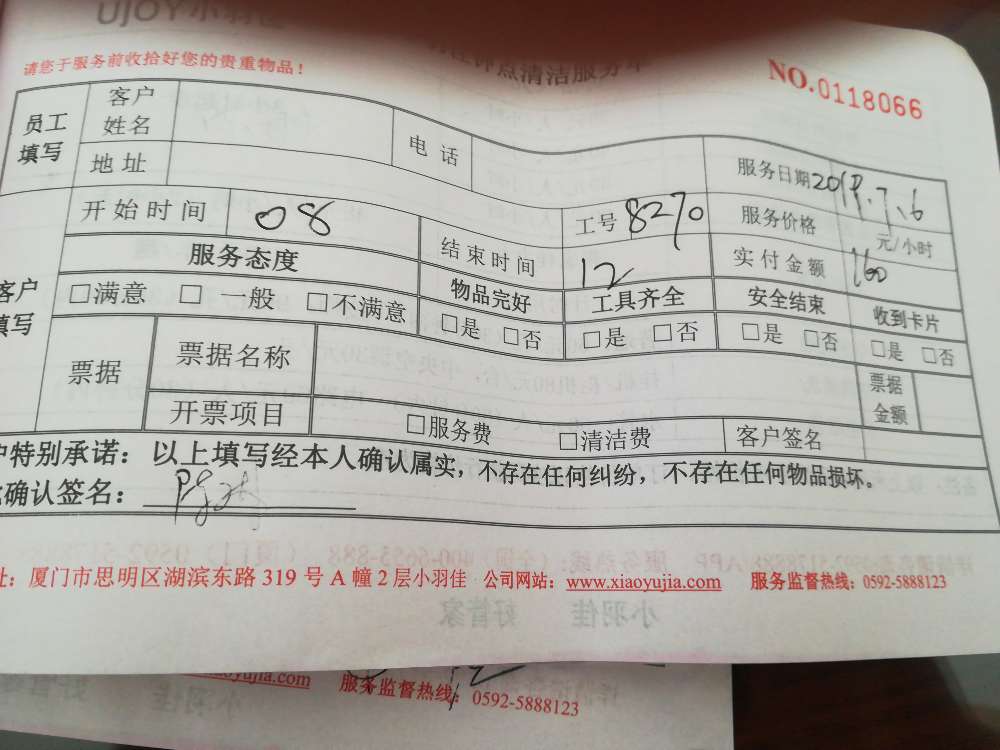 UJOY小羽佳
钟点清洁服务单
请您于服务前收拾好您的贵重物品！
NO.0118066
员工填写 客户姓名 电话 服务日期 2019.7.6
地址 工号 8270 服务价格 元/小时
开始时间 08 结束时间 12 实付金额 160
服务态度 物品完好 工具齐全 安全结束 收到卡片
客户填写 □满意 □一般 □不满意 □是 □否 □是 □否 □是 □否 □是 □否
票据 票据名称 票据金额
开票项目 □服务费 □清洁费 客户签名
户特别承诺：以上填写经本人确认属实，不存在任何纠纷，不存在任何物品损坏。
确认签名：
址：厦门市思明区湖滨东路 319 号 A 幢 2 层小羽佳 公司网站：www.xiaoyujia.com 服务监督热线：0592-5888123
aoyujia.com 服务监督热线：0592-5888123